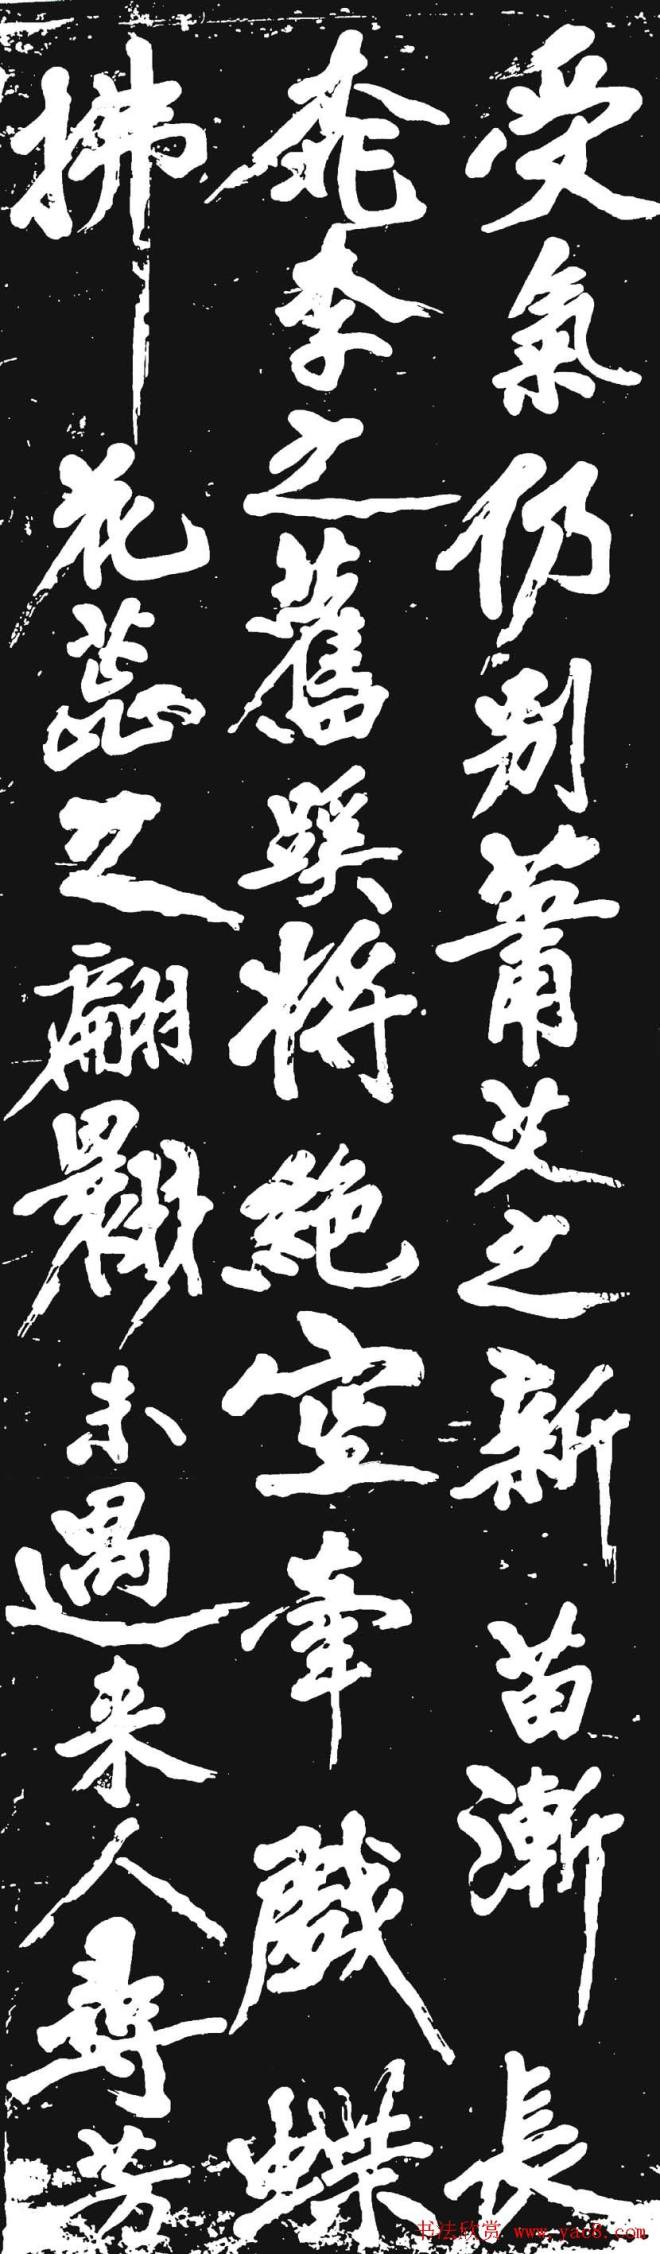 受氣仍別蕭艾之新苗漸長
桃李之舊蹊將絕空牽戲蝶
拂花蕊之翩翾未遇来人尋芳
书法欣赏 www.yac8.com